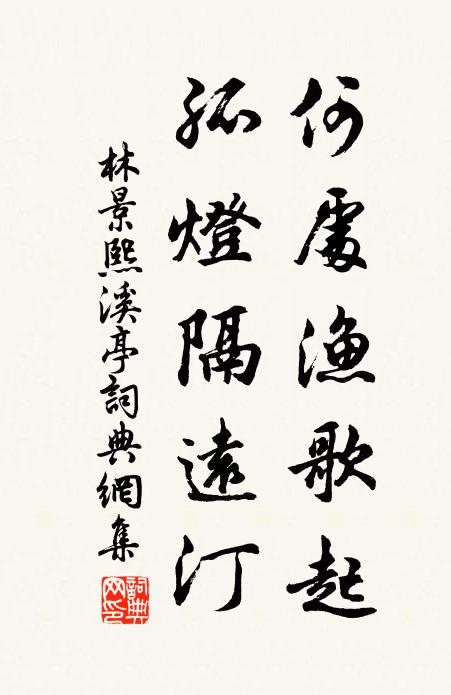 何處漁歌起
孤燈隔遠汀
林景熙溪亭詞典網集
詞典网印